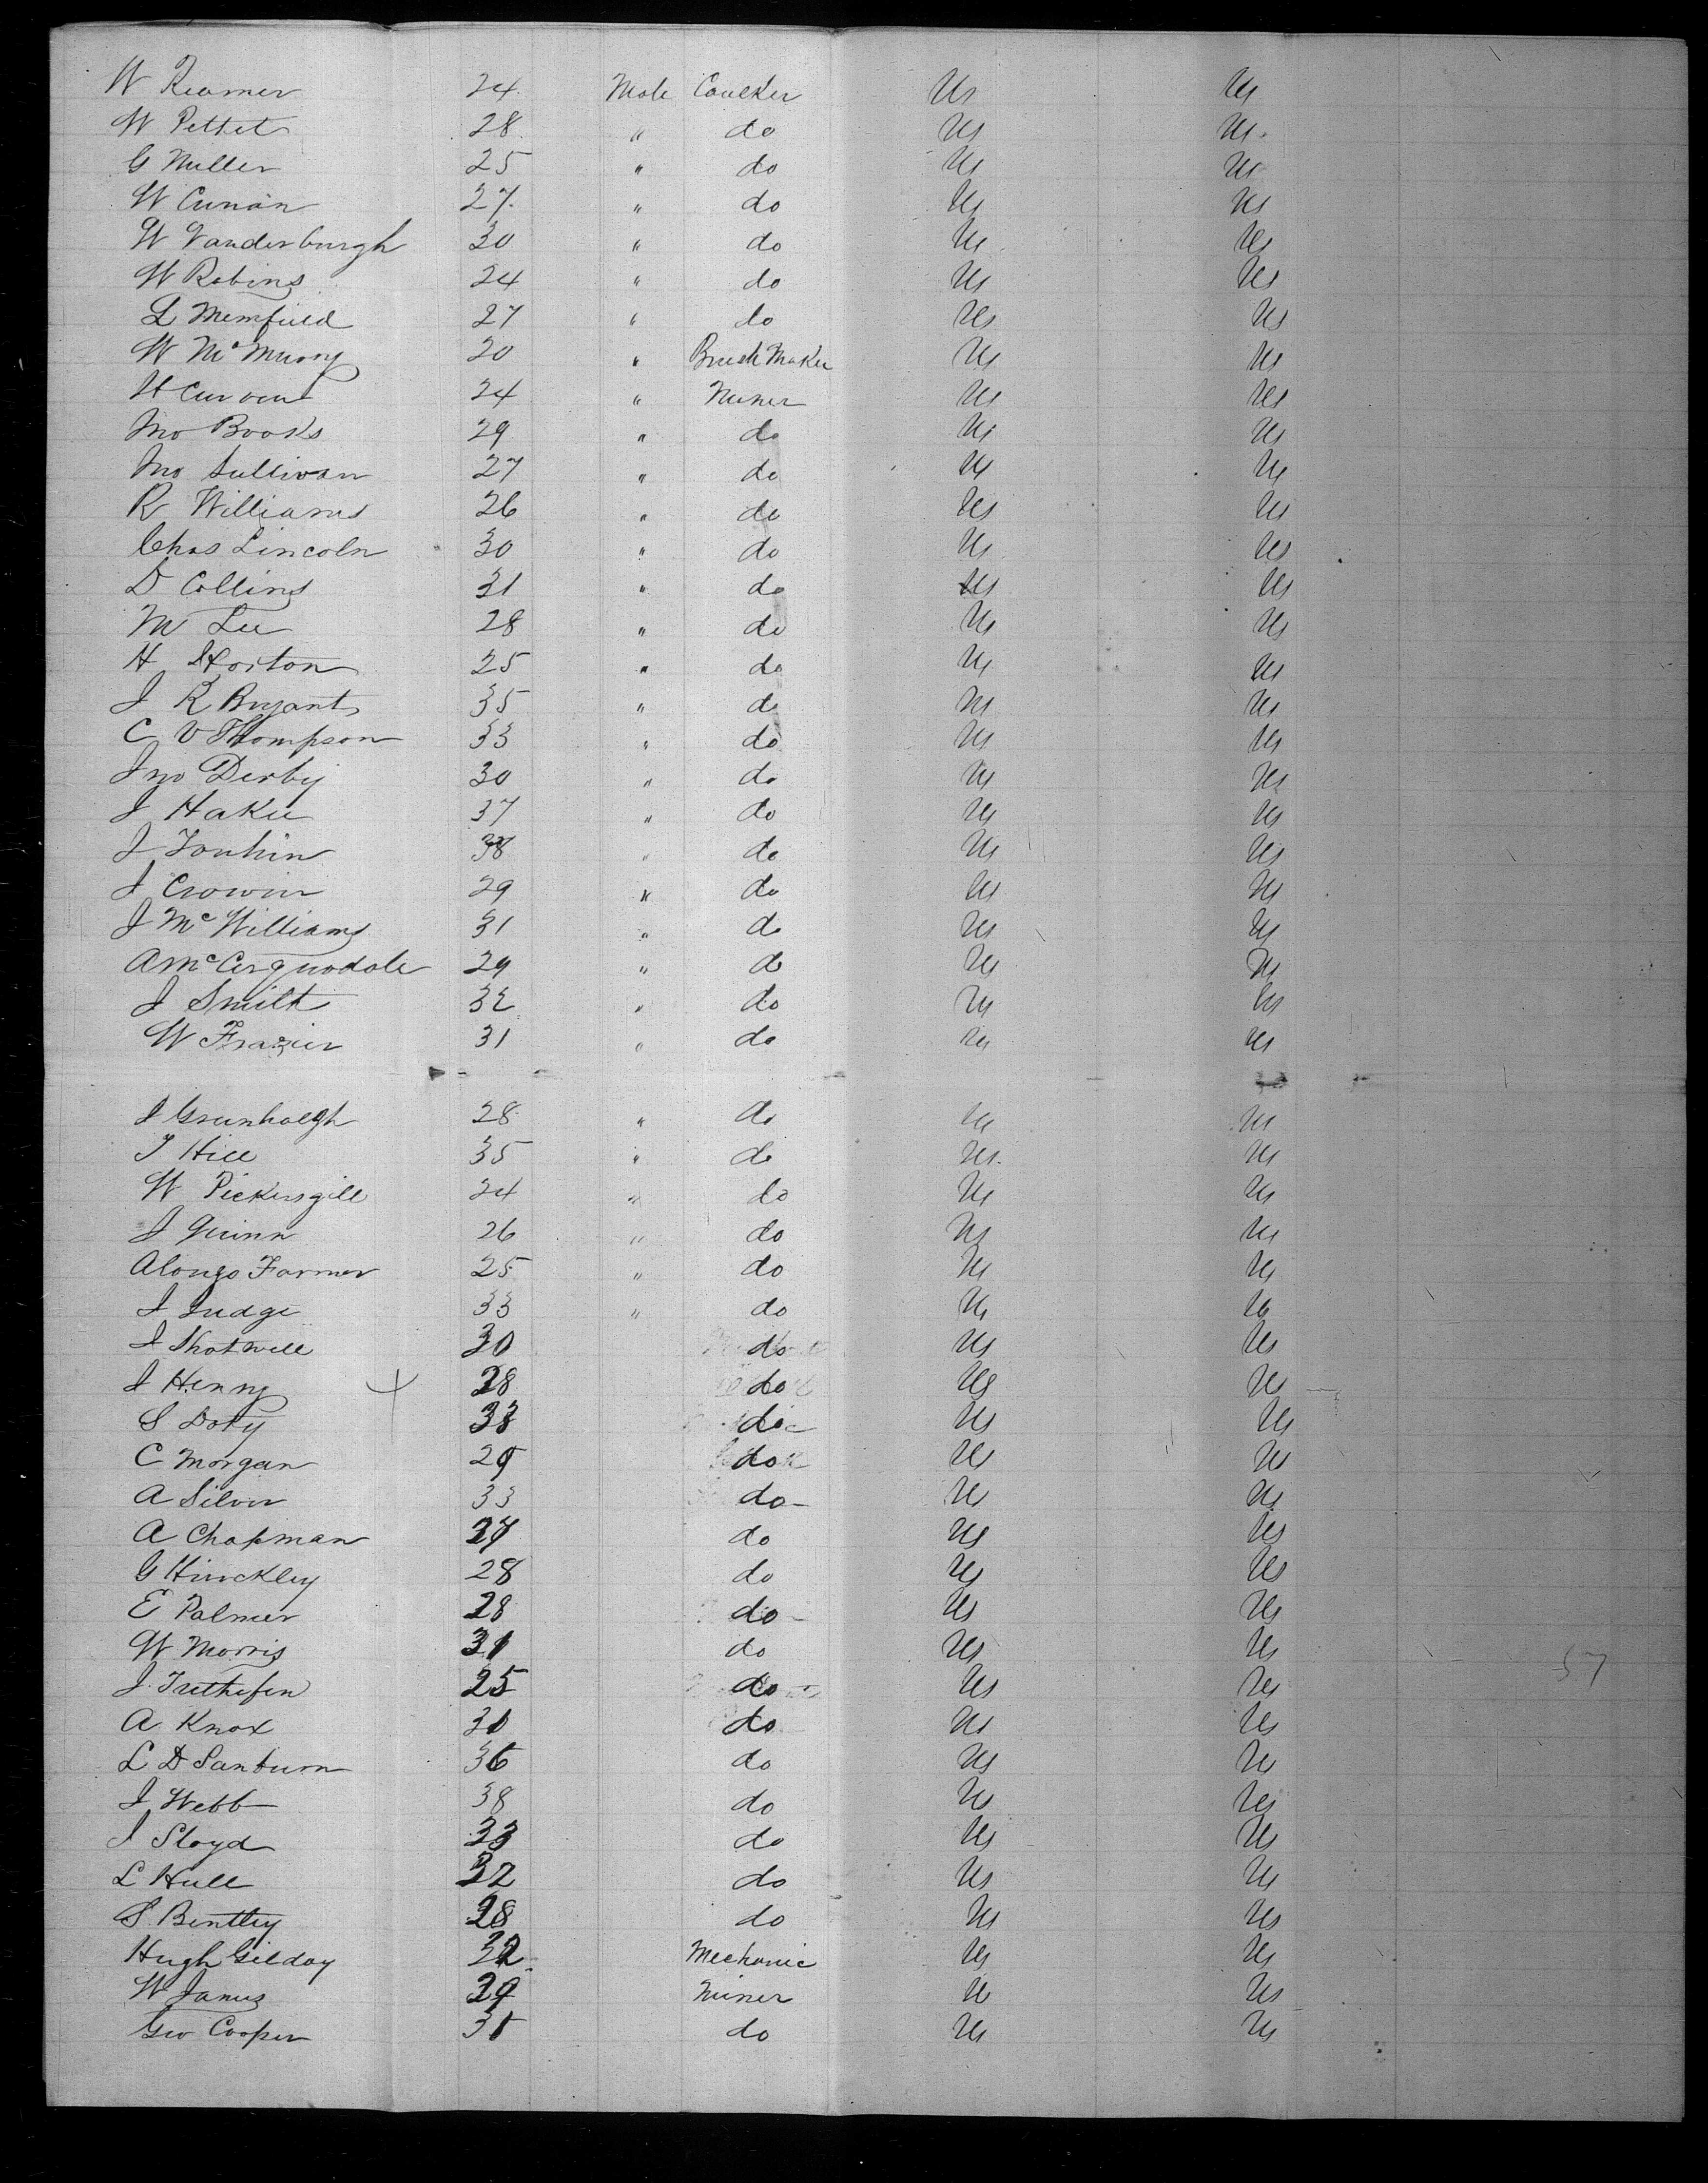 W Reamer 24 Male Caulker Us Us
W Pettet 28 " do Us Us
G Miller 25 " do Us Us
W Cunan 27 " do Us Us
W Vanderburgh 30 " do Us Us
W Robins 24 " do Us Us
L Memfield 27 " do Us Us
W McMurry 20 " Brush Maker Us Us
H Curven 24 " Miner Us Us
Jno Books 29 " do Us Us
Jno Sullivan 27 " do Us Us
R Williams 26 " do Us Us
Chas Lincoln 30 " do Us Us
D Collins 31 " do Us Us
M Lee 28 " do Us Us
H Horton 25 " do Us Us
J R Bryant 35 " do Us Us
C V Thompson 33 " do Us Us
Jno Derby 30 " do Us Us
J Hakee 37 " do Us Us
J Tonkin 38 " do Us Us
J Crowin 29 " do Us Us
J McWilliams 31 " do Us Us
A McCorquodale 29 " do Us Us
J Smith 32 " do Us Us
W Frazier 31 " do Us Us
J Greenhalgh 28 " do Us Us
T Hill 35 " do Us Us
W Pickersgill 24 " do Us Us
J Quinn 26 " do Us Us
Alonzo Farmer 25 " do Us Us
J Judge 33 " do Us Us
J Shotwell 30 do Us Us
J Henry 28 do Us Us
S Doty 38 do Us Us
C Morgan 29 do Us Us
A Silver 33 do Us Us
A Chapman 27 do Us Us
G Hinckley 28 do Us Us
E Palmer 28 do Us Us
W Morris 31 do Us Us
J Trethefen 25 do Us Us 57
A Knox 30 do Us Us
L D Sanburn 36 do Us Us
J Webb 38 do Us Us
J Sloyd 33 do Us Us
L Hull 32 do Us Us
S Bentley 28 do Us Us
Hugh Gilday 32 Mechanic Us Us
W James 29 Miner Us Us
Geo Cooper 31 do Us Us